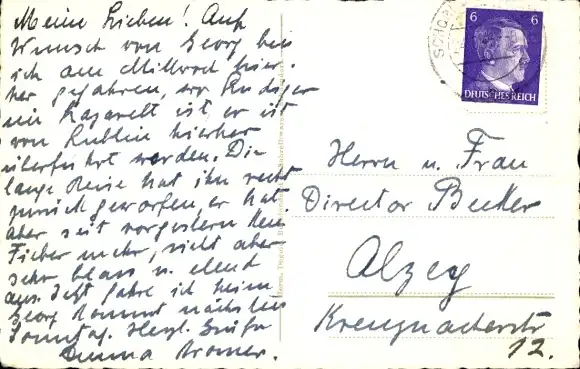 Meine Lieben! Auf
Wunsch von Georg bin
ich am Mittwoch hier-
her gefahren, wo Rudiger
im Lazarett ist, er ist
von Lublin hierher
überführt worden. Die
lange Reise hat ihn recht
zurück geworfen, er hat
aber seit vorgestern kein
Fieber mehr, sieht aber
sehr blass u. elend
aus. Jetzt fahre ich heim
Georg kommt nächsten
Sonntag. Herzl. Grüße
Emma
6 6
DEUTSCHES REICH
Herrn u. Frau
Director Becker
Alzey
Kreuznacherstr
12.